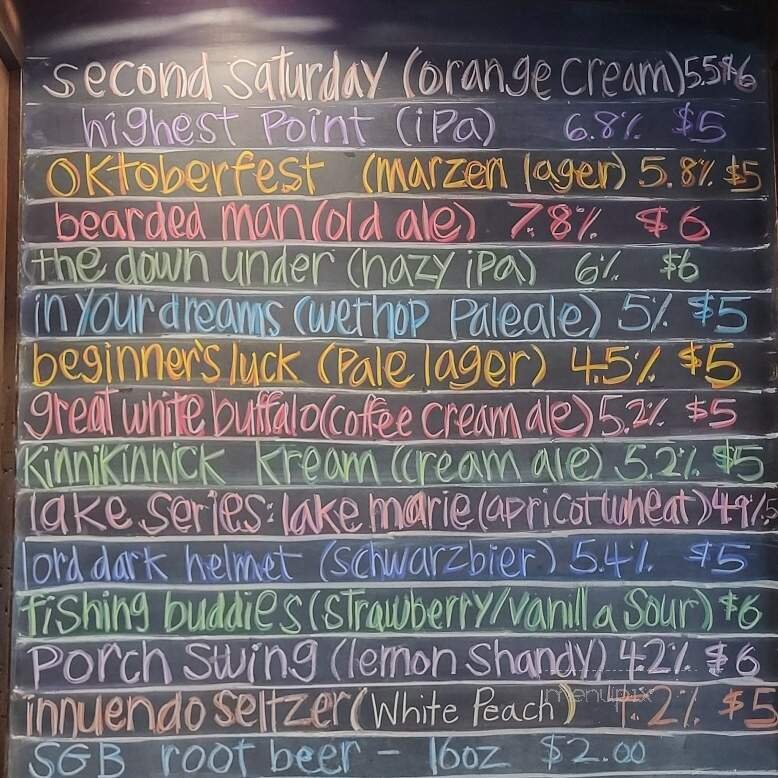 second saturday (orange cream) 5.5% $6
highest Point (iPa) 6.8% $5
Oktoberfest (marzen lager) 5.8% $5
bearded man (old ale) 7.8% $6
the down under (hazy iPa) 6% $6
in your dreams (wethop Paleale) 5% $5
beginner's luck (Pale lager) 4.5% $5
great white buffalo (coffee cream ale) 5.2% $5
Kinnikinnick kream (cream ale) 5.2% $5
lake series: lake marie (apricot wheat) 4.9% 5
lord dark helmet (schwarzbier) 5.4% $5
fishing buddies (strawberry/vanilla Sour) $6
Porch Swing (lemon Shandy) 4.2% $6
menupix
innuendo seltzer (White Peach) 4.2% $5
SGB root beer - 16oz $2.00